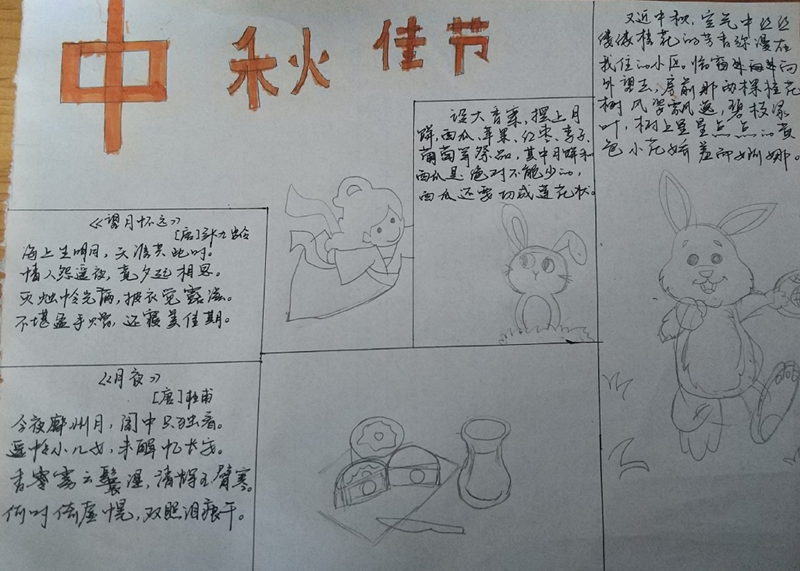 中秋佳节
又近中秋，空气中丝丝
缕缕桂花的芳香弥漫在
我住的小区，临窗
外望去，房前那两棵桂花
树风姿飘逸，碧枝绿
叶，树上星星点点的黄
色小花娇羞而婀娜。
设大香案，摆上月
饼、西瓜、苹果、红枣、李子、
葡萄等祭品，其中月饼和
西瓜是绝对不能少的，
西瓜还要切成莲花状。
《望月怀远》
[唐]张九龄
海上生明月，天涯共此时。
情人怨遥夜，竟夕起相思。
灭烛怜光满，披衣觉露滋。
不堪盈手赠，还寝梦佳期。
《月夜》
[唐]杜甫
今夜鄜州月，闺中只独看。
遥怜小儿女，未解忆长安。
香雾云鬟湿，清辉玉臂寒。
何时倚虚幌，双照泪痕干。